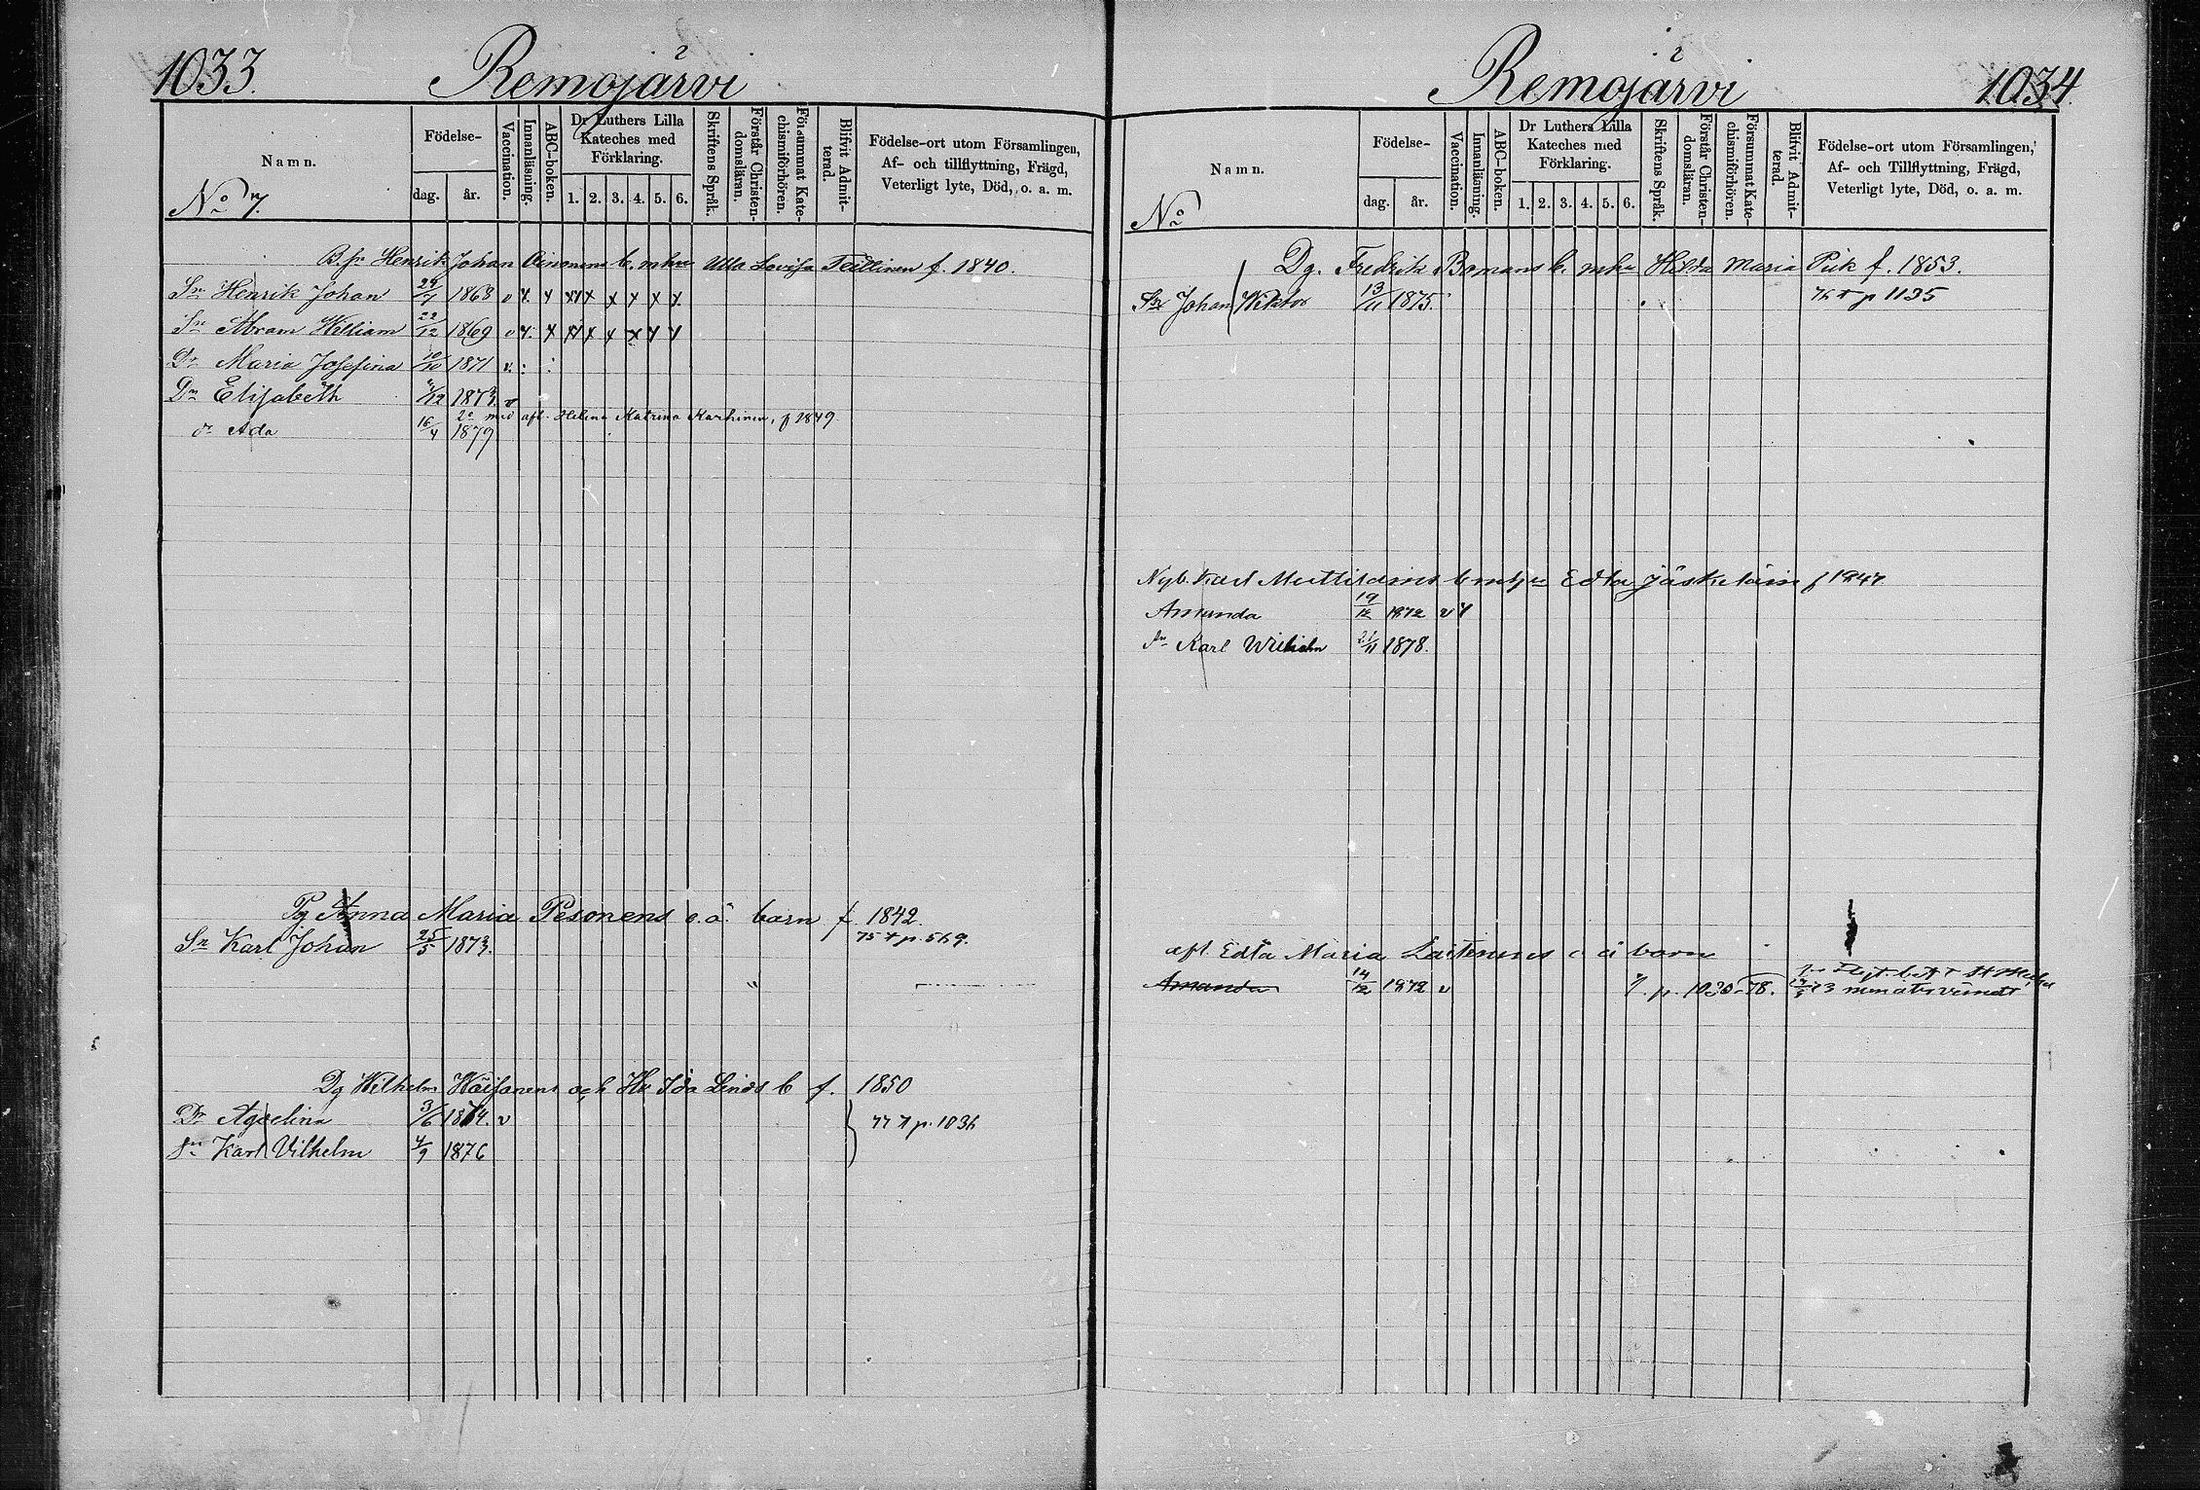 1033.
Remojärvi
Namn.
Födelse-
dag.
år.
Vaccination.
Innanläsning.
ABC-boken.
Dr Luthers Lilla
Kateches med
Förklaring.
1. 2. 3. 4. 5. 6.
Skriftens Språk.
Förstår Christen-
domsläran.
Försummat Kate-
chismiförhören.
Blifvit Admit-
terad.
Födelse-ort utom Församlingen,
Af- och tillflyttning, Frägd,
Veterligt lyte, Död, o. a. m.
No 7.
Henrik Johan Oinonens b. m hu Ulla Lovisa Teittinen f. 1840.
Sn Henrik Johan 29/7 1863 v x x x x x x x x x
Sn Abram Williiam 22/12 1869 v x x x x x x x x x
Dr Maria Josefina 10/10 1871 v.
Dr Elisabeth /12 1873. v
2o med afl. Helena Katrina Karhinen, f 1849
dr Ada 16/4 1879
Pg Anna Maria Pesonens o. ä. barn f 1842
Sn Karl Johan 25/5 1873. 75 + p. 569.
Dg Wilhelm Häisanens och Hu Ida Linds b f. 1850
Dr Agselina 3/6 1874. v
77 + p. 1036
Sn Karl Vilhelm 4/9 1876
Remojärvi
1034
Namn.
Födelse-
dag.
år.
Vaccination.
Innanläsning.
ABC-boken.
Dr Luthers Lilla
Kateches med
Förklaring.
1. 2. 3. 4. 5. 6.
Skriftens Språk.
Förstår Christen-
domsläran.
Försummat Kate-
chismiförhören.
Blifvit Admit-
terad.
Födelse-ort utom Församlingen,
Af- och Tillflyttning, Frägd,
Veterligt lyte, Död, o. a. m.
No
Dg. Fredrik Bomans b. m hu Hilda Maria Puk f. 1853.
Sn Johan Wiktor 13/11 1875. 76 + p 1135
Nyb. Karl b m hu Edla Jäskeläin f 1847
Amanda 19/12 1872 v x
Sn Karl Wilhelm 21/11 1878.
afl. Edla Maria Laitinens o ä barn
Amanda 14/12 1872 v p. 1030 - 78.